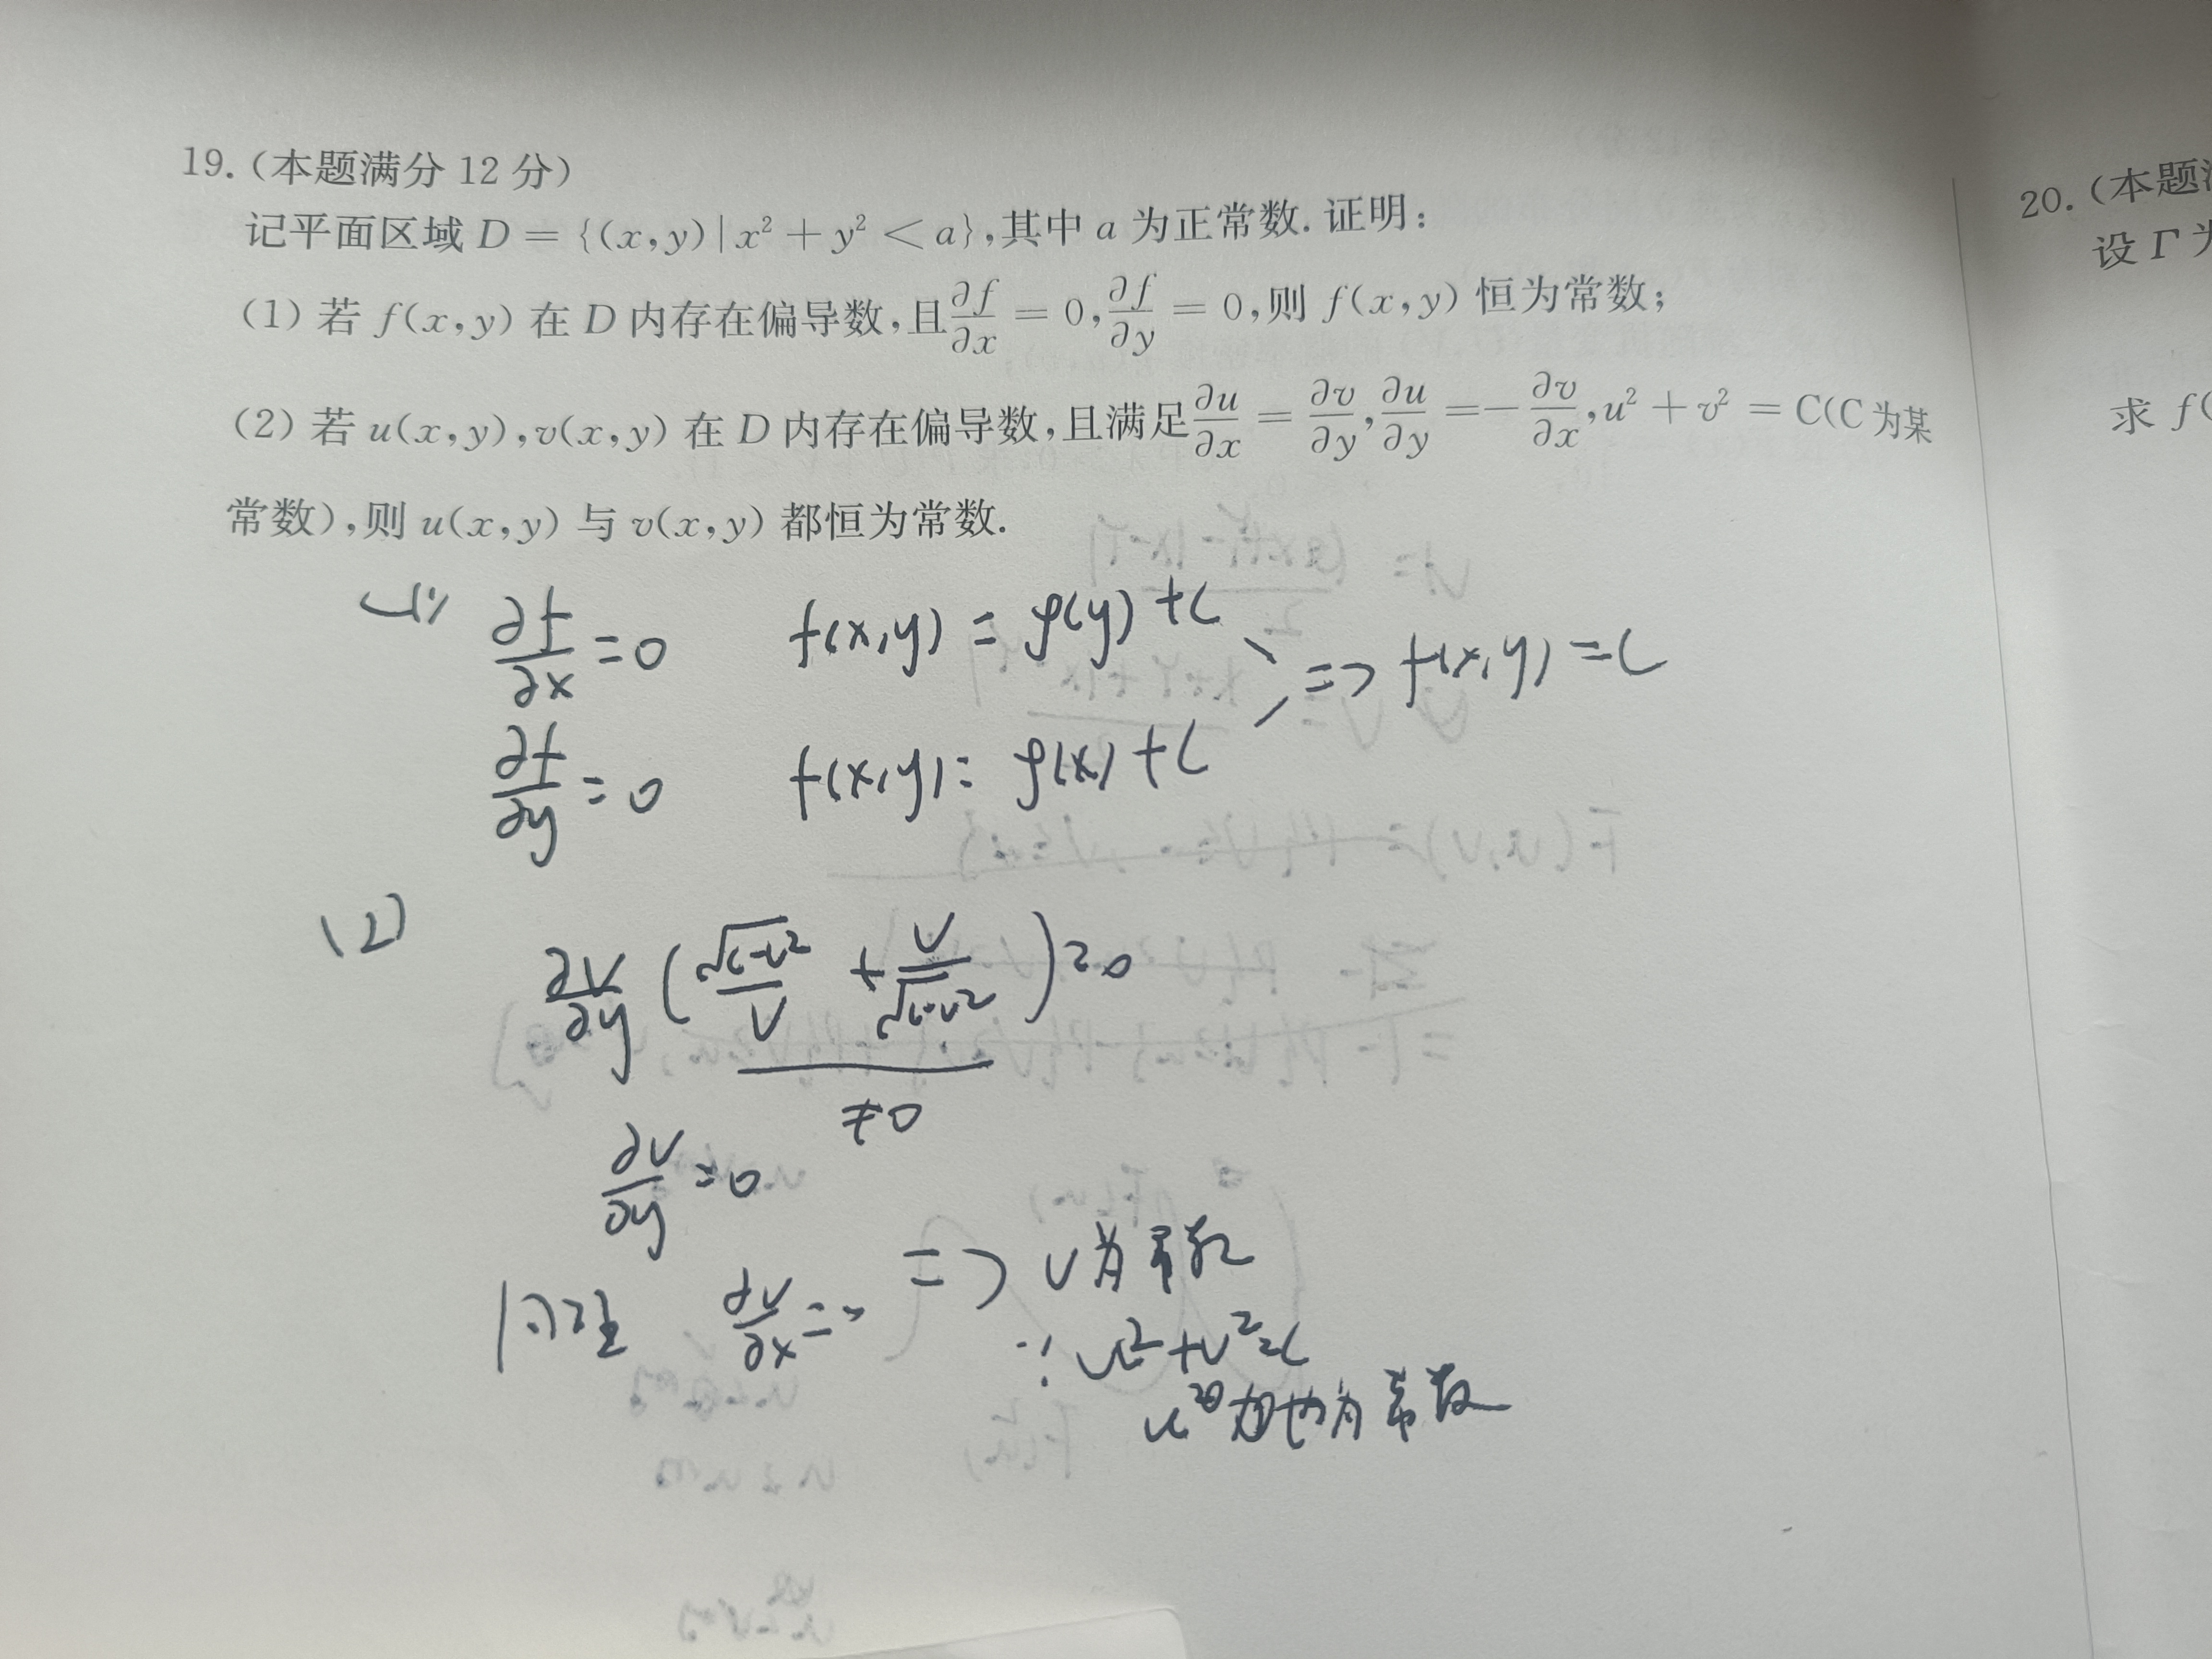 19.(本题满分 12 分)
记平面区域 D = {(x,y)|x² + y² < a},其中 a 为正常数. 证明:
(1) 若 f(x,y) 在 D 内存在偏导数,且∂f/∂x = 0,∂f/∂y = 0,则 f(x,y) 恒为常数;
(2) 若 u(x,y),v(x,y) 在 D 内存在偏导数,且满足∂u/∂x = ∂v/∂y,∂u/∂y = -∂v/∂x,u² + v² = C(C 为某
常数),则 u(x,y) 与 v(x,y) 都恒为常数.
(1) ∂f/∂x = 0 f(x,y) = φ(y) + C
=> f(x,y) = C
∂f/∂y = 0 f(x,y) = φ(x) + C
(2)
∂v/∂y (√(C-v²)/v + v/√(C-v²)) = 0
≠0
∂v/∂y = 0
同理 ∂v/∂x = 0 => v为常数
∵ u² + v² = C
也为常数
20.(本题
设 Γ 为
求 f(